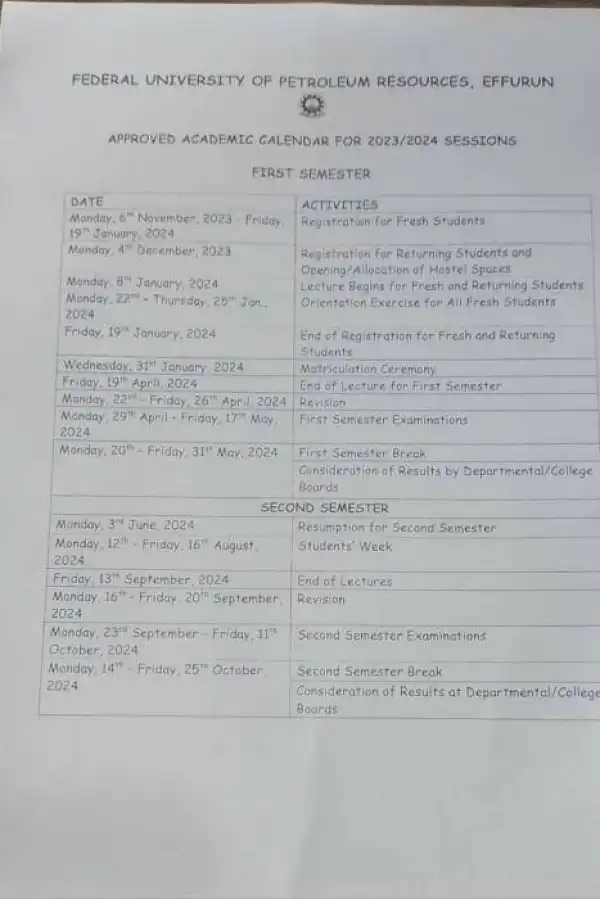 FEDERAL UNIVERSITY OF PETROLEUM RESOURCES, EFFURUN
APPROVED ACADEMIC CALENDAR FOR 2023/2024 SESSIONS
FIRST SEMESTER
DATE
ACTIVITIES
Monday, 6th November, 2023 - Friday,
19th January, 2024
Registration for Fresh Students
Monday, 4th December, 2023
Registration for Returning Students and
Opening/Allocation of Hostel Spaces
Monday, 8th January, 2024
Lecture Begins for Fresh and Returning Students
Monday, 22nd - Thursday, 25th Jan.,
2024
Orientation Exercise for All Fresh Students
Friday, 19th January, 2024
End of Registration for Fresh and Returning
Students
Wednesday, 31st January, 2024
Matriculation Ceremony
Friday, 19th April, 2024
End of Lecture for First Semester
Monday, 22nd - Friday, 26th April, 2024
Revision
Monday, 29th April - Friday, 17th May,
2024
First Semester Examinations
Monday, 20th - Friday, 31st May, 2024
First Semester Break
Consideration of Results by Departmental/College
Boards
SECOND SEMESTER
Monday, 3rd June, 2024
Resumption for Second Semester
Monday, 12th - Friday, 16th August,
2024
Students' Week
Friday, 13th September, 2024
End of Lectures
Monday, 16th - Friday, 20th September,
2024
Revision
Monday, 23rd September - Friday, 11th
October, 2024
Second Semester Examinations
Monday, 14th - Friday, 25th October,
2024
Second Semester Break
Consideration of Results at Departmental/College
Boards